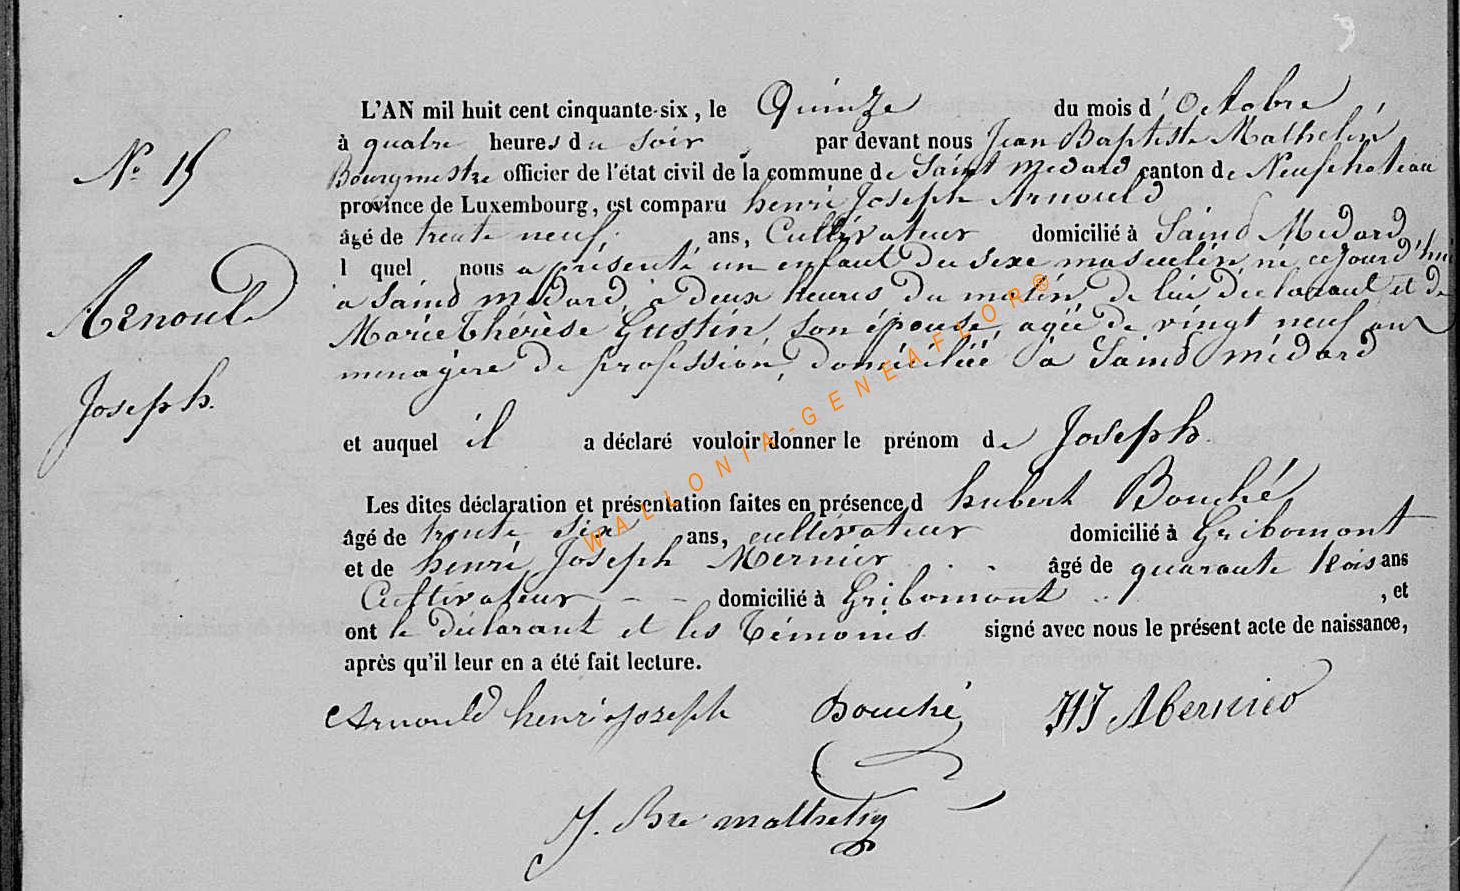 L'AN mil huit cent cinquante-six, le Quinze du mois d'Octobre
à quatre heures du soir par devant nous Jean Baptiste Mathelin
Bourgmestre officier de l'état civil de la commune de Saint Medard canton de Neufchateau
province de Luxembourg, est comparu henri Joseph Arnould
âgé de trente neuf, ans, Cultivateur domicilié à Saind Médard
l quel nous a présenté un enfant du sexe masculin né cejourd'hui
à Saind Médard, à deux heures du matin, de lui déclarant et de
Marie Thérèse Gustin, son épouse, agée de vingt neuf ans
menagère de profession, domiciliée à Saind médard
et auquel il a déclaré vouloir donner le prénom de Joseph.
Les dites déclaration et présentation faites en présence d hubert Bouché,
âgé de trente six ans, cultivateur domicilié à Gribomont
et de henri Joseph Mernier âgé de quarante trois ans
Cultivateur - - domicilié à Gribomont , et
ont le déclarant et les témoins signé avec nous le présent acte de naissance,
après qu'il leur en a été fait lecture.
Arnould henri joseph Bouché HJ Mernier
J. Bte mathelin
N° 15
Arnould
Joseph.
WALLONIA-GENEAFLOR®